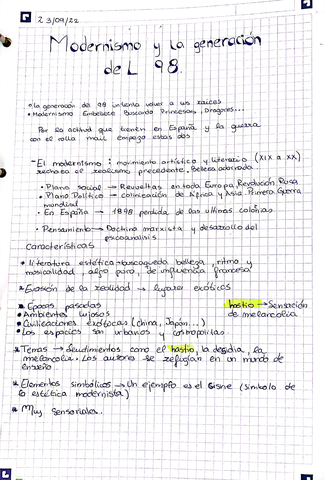 23/09/22
Modernismo y la generación
de L 98.
o la generación de 98 intenta volver a las raices
• Modernismo Embellece Buscando Princesas, Dragones...
Por la actitud que tienen en España y la guerra
con el rolla mail empezo estas dos
- El modernismo: movimiento artístico y literario (XIX a XX)
rechaza el realismo, precedente, belleza adornada
• Plano social → Revueltas en toda Europa, Revolución Rusa
• Plano Político → colinización de Africa y Asia Primera Guerra
mundial
• En España → 1898 perdida de las ultimas colonias
• Pensamiento → Doctrina marxista y desarrollo del
psicoanalisis
Características
* literatura estética → busca belleza, ritmo y
musicalidad, algo puro, de influencia francesa
* Evasión de la realidad → lugares exóticos
* Epocas pasadas
hastio → Sensación
de melancolia
• Ambientes lujosos
• Civilizaciones exóticas (China, Japón...)
• Los espacios son urbanos y cosmopolitas.
* Temas → Sentimientos como el hastio, la desidia, la
melancolia. Los autores se refugian en un mundo de
ensueño
* Elementos simbólicos → Un ejemplo es el Cisne (simbolo de
la estética modernista)
* Muy Sensoriales.